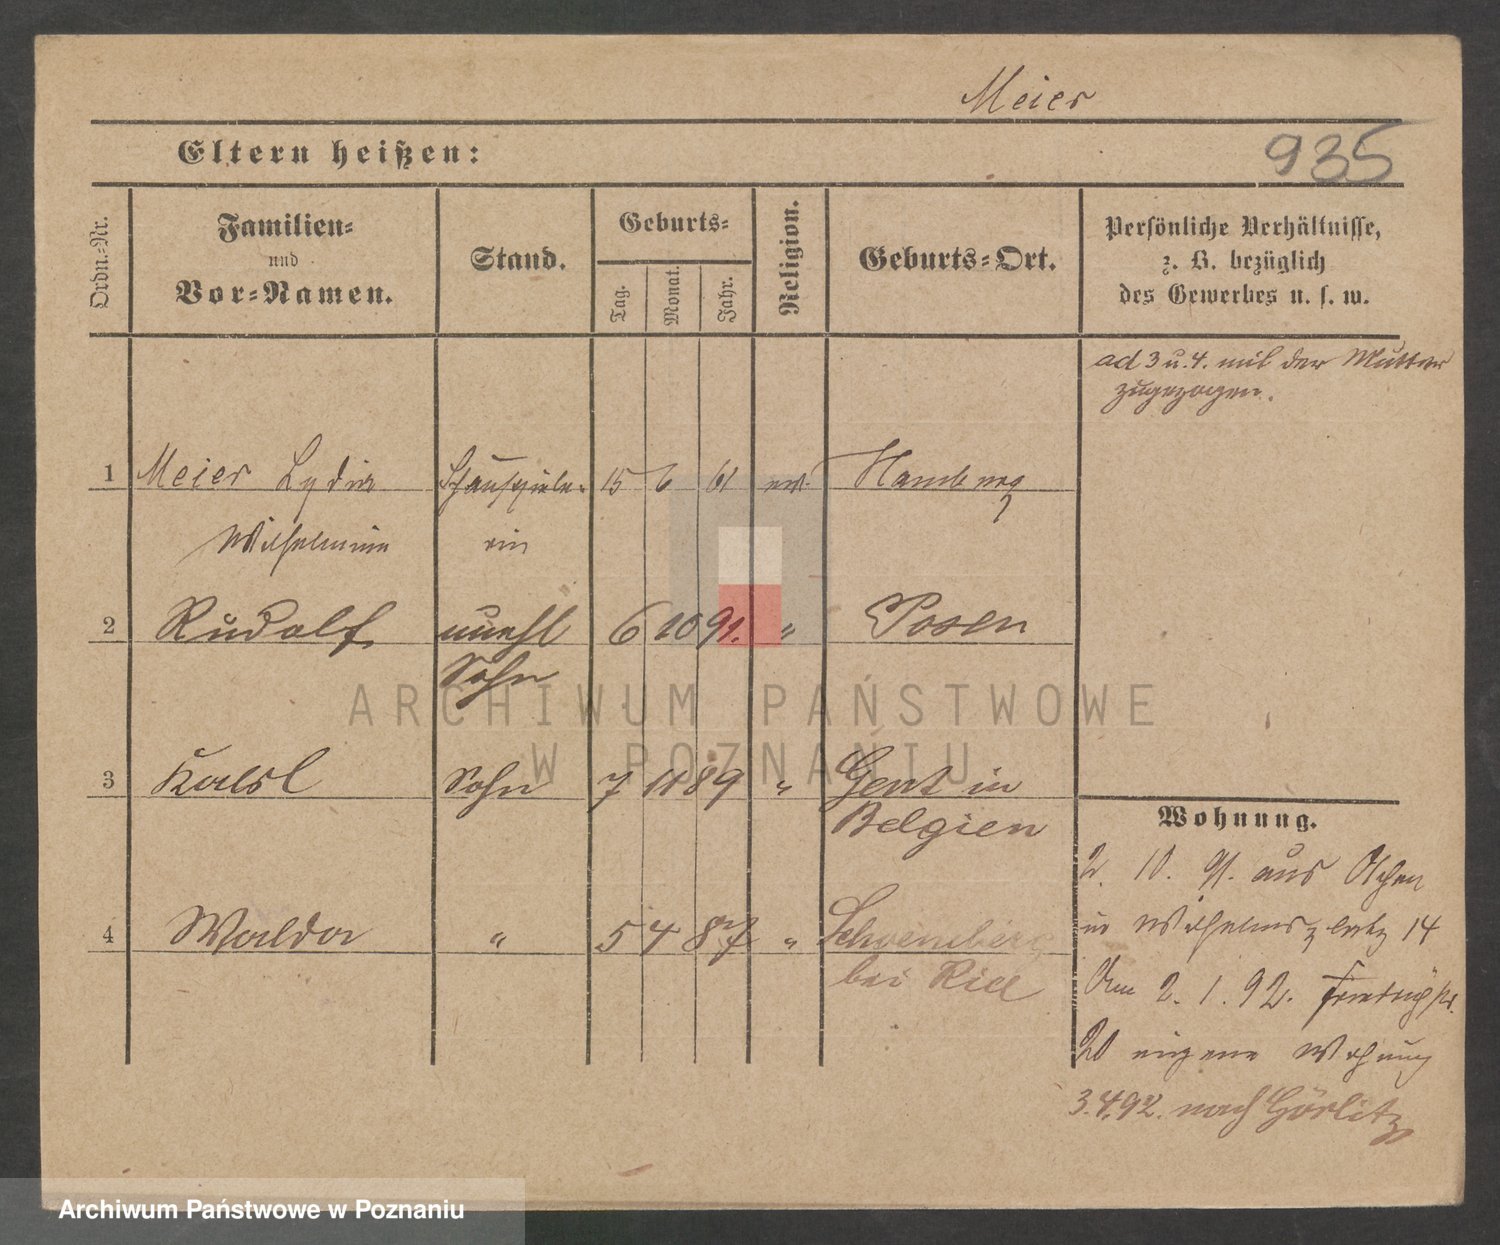 Meier
Eltern heißen:
935
Ordn.-Nr.
Familien-
und
Vor-Namen.
Stand.
Geburts-
Tag.
Monat.
Jahr.
Religion.
Geburts-Ort.
Persönliche Verhältnisse,
z. B. bezüglich
des Gewerbes u. s. w.
ad 3 u. 4. mit der Mutter
zugezogen.
1 Meier Lydia Schauspiele- 15 6 61 ev. Hamburg
Wilhelmine rin
2 Rudolf unehl 6 10 91. " Posen
Sohn
3 Karl Sohn 7 11 89 " Gent in
Belgien
4 Waldor " 5 4 87 " Schoenberg
bei Kiel
Wohnung.
2. 10. 91. aus Achen
in Wilhelmsplatz 14
Am 2. 1. 92. Friedrichstr.
20 eigene Wohnung
3.4.92. nach Görlitz
ARCHIWUM PAŃSTWOWE
W POZNANIU
Archiwum Państwowe w Poznaniu